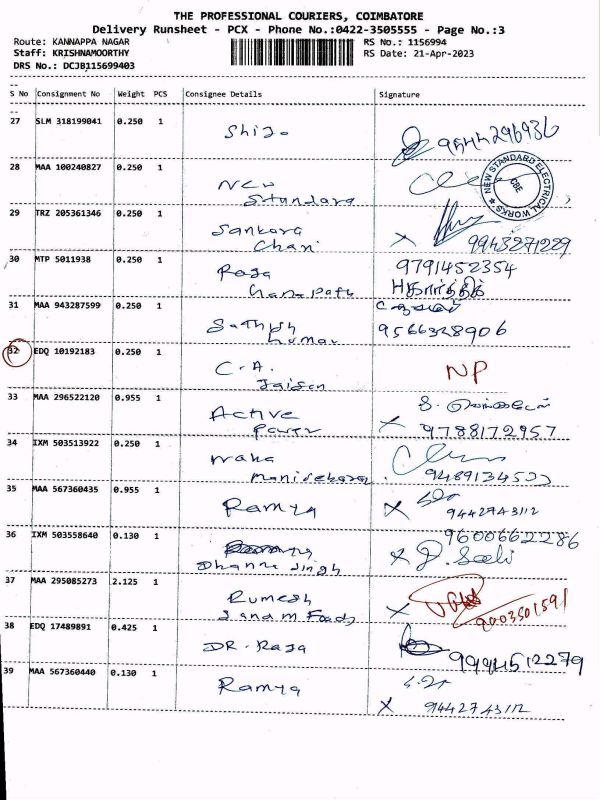 THE PROFESSIONAL COURIERS, COIMBATORE
Delivery Runsheet - PCX - Phone No.:0422-3505555 - Page No.:3
Route: KANNAPPA NAGAR
RS No.: 1156994
Staff: KRISHNAMOORTHY
RS Date: 21-Apr-2023
DRS No.: DCJB115699403
S No Consignment No Weight PCS Consignee Details Signature
27 SLM 318199041 0.250 1
28 MAA 100240827 0.250 1
New
NEW STANDARD ELECTRICAL WORKS
CBE
29 TRZ 205361346 0.250 1
Sankara
Chari
9943271229
30 MTP 5011938 0.250 1
Raja
9791452354
31 MAA 943287599 0.250 1
Sathish
Kumar
9566328906
32 EDQ 10192183 0.250 1
C.A.
Jaison
NP
33 MAA 296522120 0.955 1
Active
Power
9788172957
34 IXM 503513922 0.250 1
35 MAA 567360435 0.955 1
Ramya
9442743112
36 IXM 503558640 0.130 1
9600662286
Singh
37 MAA 295085273 2.125 1
Rumesh
Foods
9003501591
38 EDQ 17489891 0.425 1
DR. Raja
39 MAA 567360440 0.130 1
Ramya
9442743112